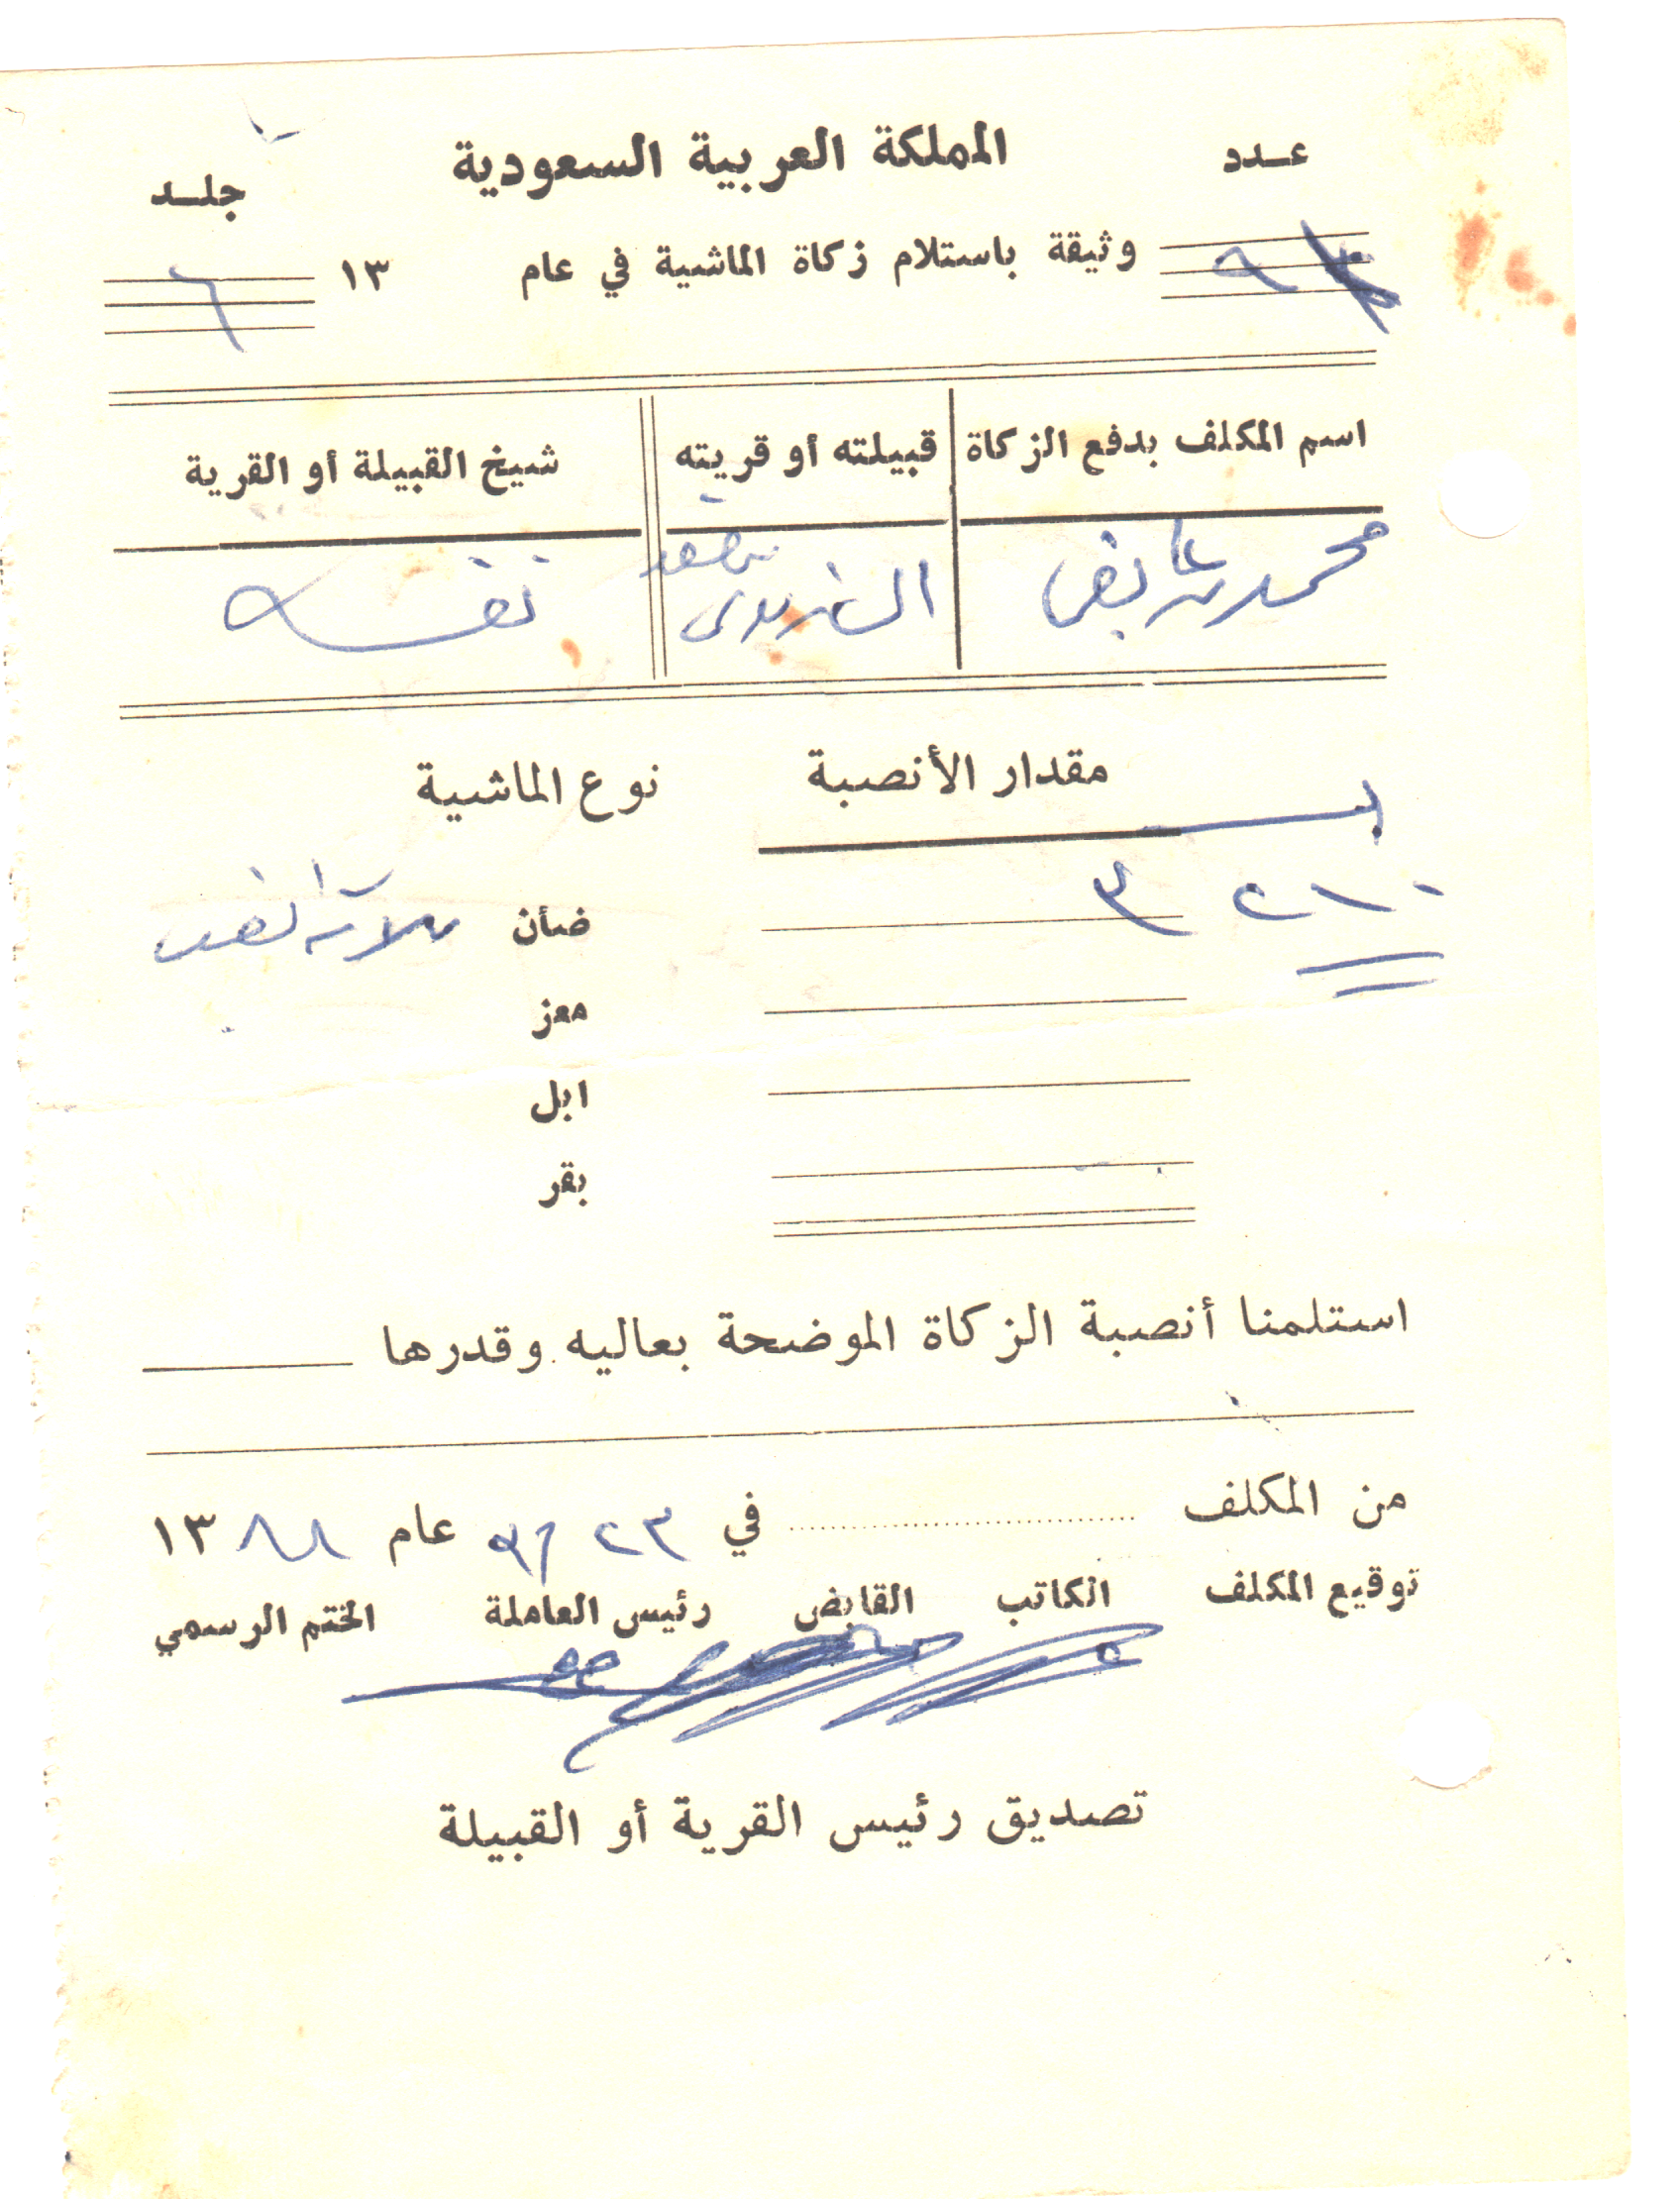 عدد
المملكة العربية السعودية
جلد
وثيقة باستلام زكاة الماشية في عام ١٣
٦
اسم المكلف بدفع الزكاة قبيلته أو قريته شيخ القبيلة أو القرية
محمد بن عايض نفسه
مقدار الأنصبة نوع الماشية
٢١٠ ٣ ضأن ثلاثة
معز
ابل
بقر
استلمنا أنصبة الزكاة الموضحة بعاليه وقدرها
من المكلف في ٢٣ / ٩ عام ١٣٨٨
توقيع المكلف الكاتب القابض رئيس العاملة الختم الرسمي
تصديق رئيس القرية أو القبيلة